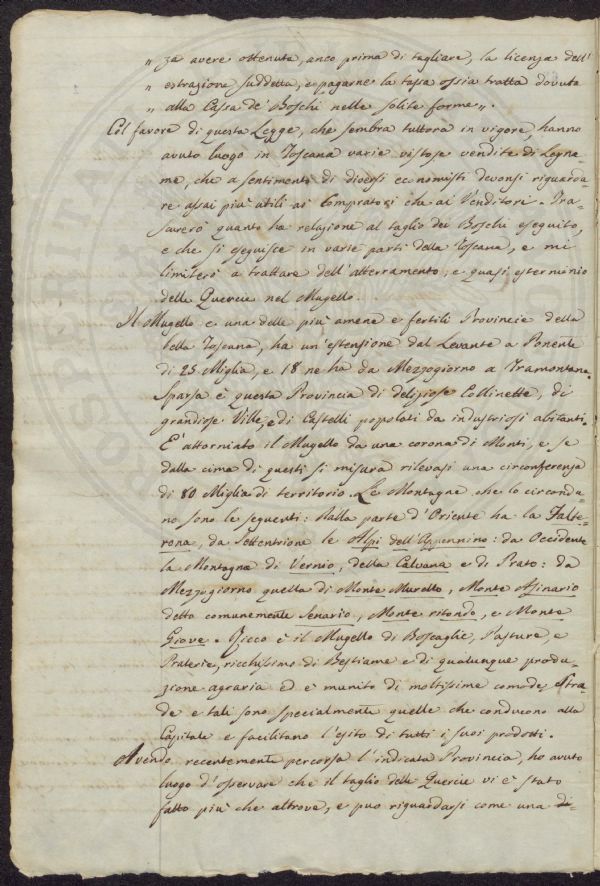 „ za avere ottenuta, anco prima di tagliare, la licenza dell'
„ estrazione suddetta, e pagarne la tassa ossia tratta dovuta
„ alla Cassa de' Boschi nelle solite forme„.
Col favore di questa Legge, che sembra tuttora in vigore, hanno
avuto luogo in Toscana varie vistose vendite di Legna-
me, che a sentimento di diversi economisti devonsi riguarda-
re assai più utili ai Compratori che ai Venditori. Tra-
scurerò quanto ha relazione al taglio dei Boschi eseguito,
e che si eseguisce in varie parti della Toscana, e mi
limiterò a trattare dell'atterramento, e quasi esterminio
delle Quercie nel Mugello.
Il Mugello è una delle più amene e fertili Provincie della
bella Toscana, ha un'estensione dal Levante a Ponente
di 25 Miglia, e 18 ne ha da Mezzogiorno a Tramontana.
Sparsa è questa Provincia di deliziose Collinette, di
grandiose Ville, e di Castelli popolati da industriosi abitanti.
E' attorniato il Mugello da una corona di Monti, e se
dalla cima di questi si misura rilevasi una circonferenza
di 80 Miglia di territorio. Le Montagne che lo circonda-
no sono le seguenti: dalla parte d'Oriente ha la Falte-
rona, da Settentrione le Alpi dell'Appennino: da Occidente
la Montagna di Vernio, della Calvana e di Prato: da
Mezzogiorno quella di Monte Morello, Monte Asinario
detto comunemente Senario, Monte ritondo, e Monte
Giove. Ricco è il Mugello di Boscaglie, Pasture, e
Praterie, ricchissimo di Bestiame e di qualunque produ-
zione agraria ed è munito di moltissime comode Stra-
de e tali sono specialmente quelle che conducono alla
Capitale e facilitano l'esito di tutti i suoi prodotti.
Avendo recentemente percorsa l'indicata Provincia, ho avuto
luogo d'osservare che il taglio delle Quercie vi è stato
fatto più che altrove, e può riguardarsi come una di-